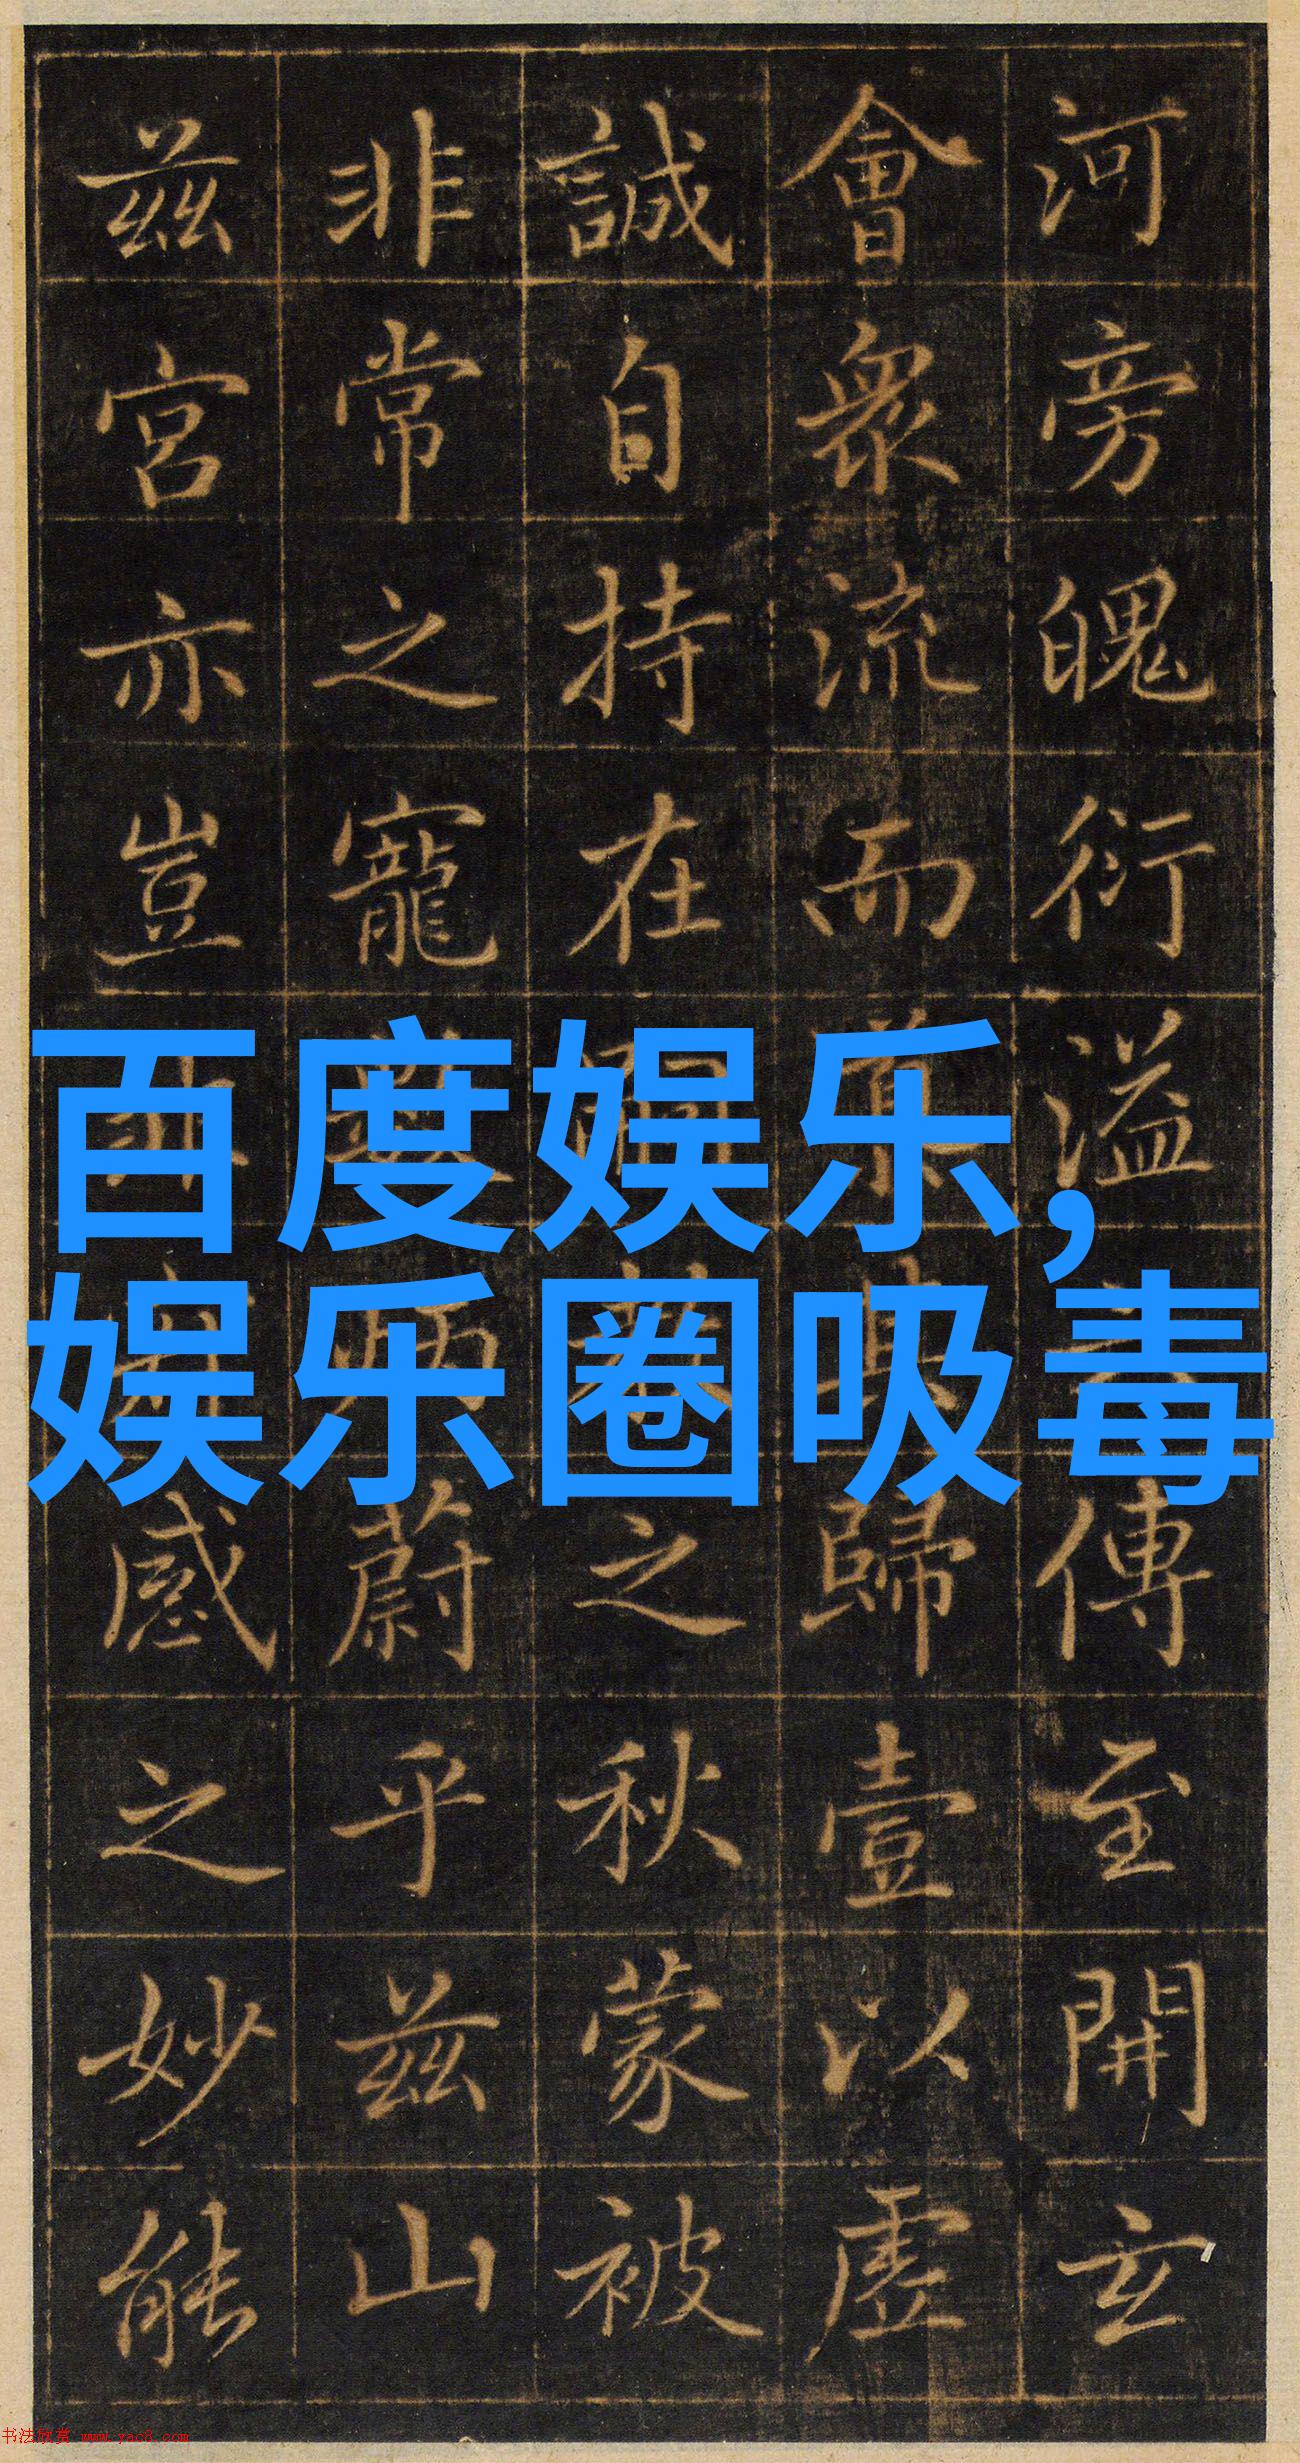 河旁魄衍溢傳至開玄
會衆流而歸壹以虛
誠自持在之秋蒙被
非常之寵蔚乎兹山
兹宮亦豈感之妙能
百度娱乐,
娱乐圈吸毒
书法欣赏 www.yac8.com